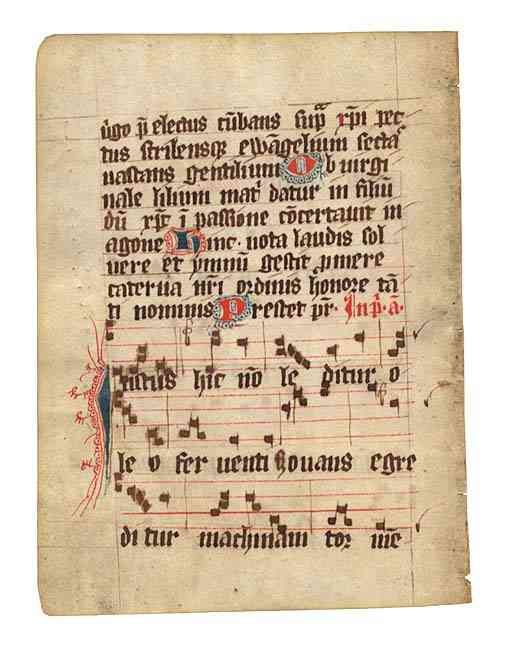 v̾go p̄ electus cūbans sup̄ xp̄i pec
tus scribensqꝫ ewāgelium secta
vastans gentilium Ob virgi
nale lilium mat̾ datur in filiū
dū xp̄c ī passione cōcertauit in
agone Hinc vota laudis sol
uere et ympnū gestit p̄mere
caterua nr̄i ordinis honore tā
ti nominis Prestet pr̄. In p̄. ā.
Intus hic nō le ditur o
le o fer uenti Nouans egre
di tur machinam tor mē